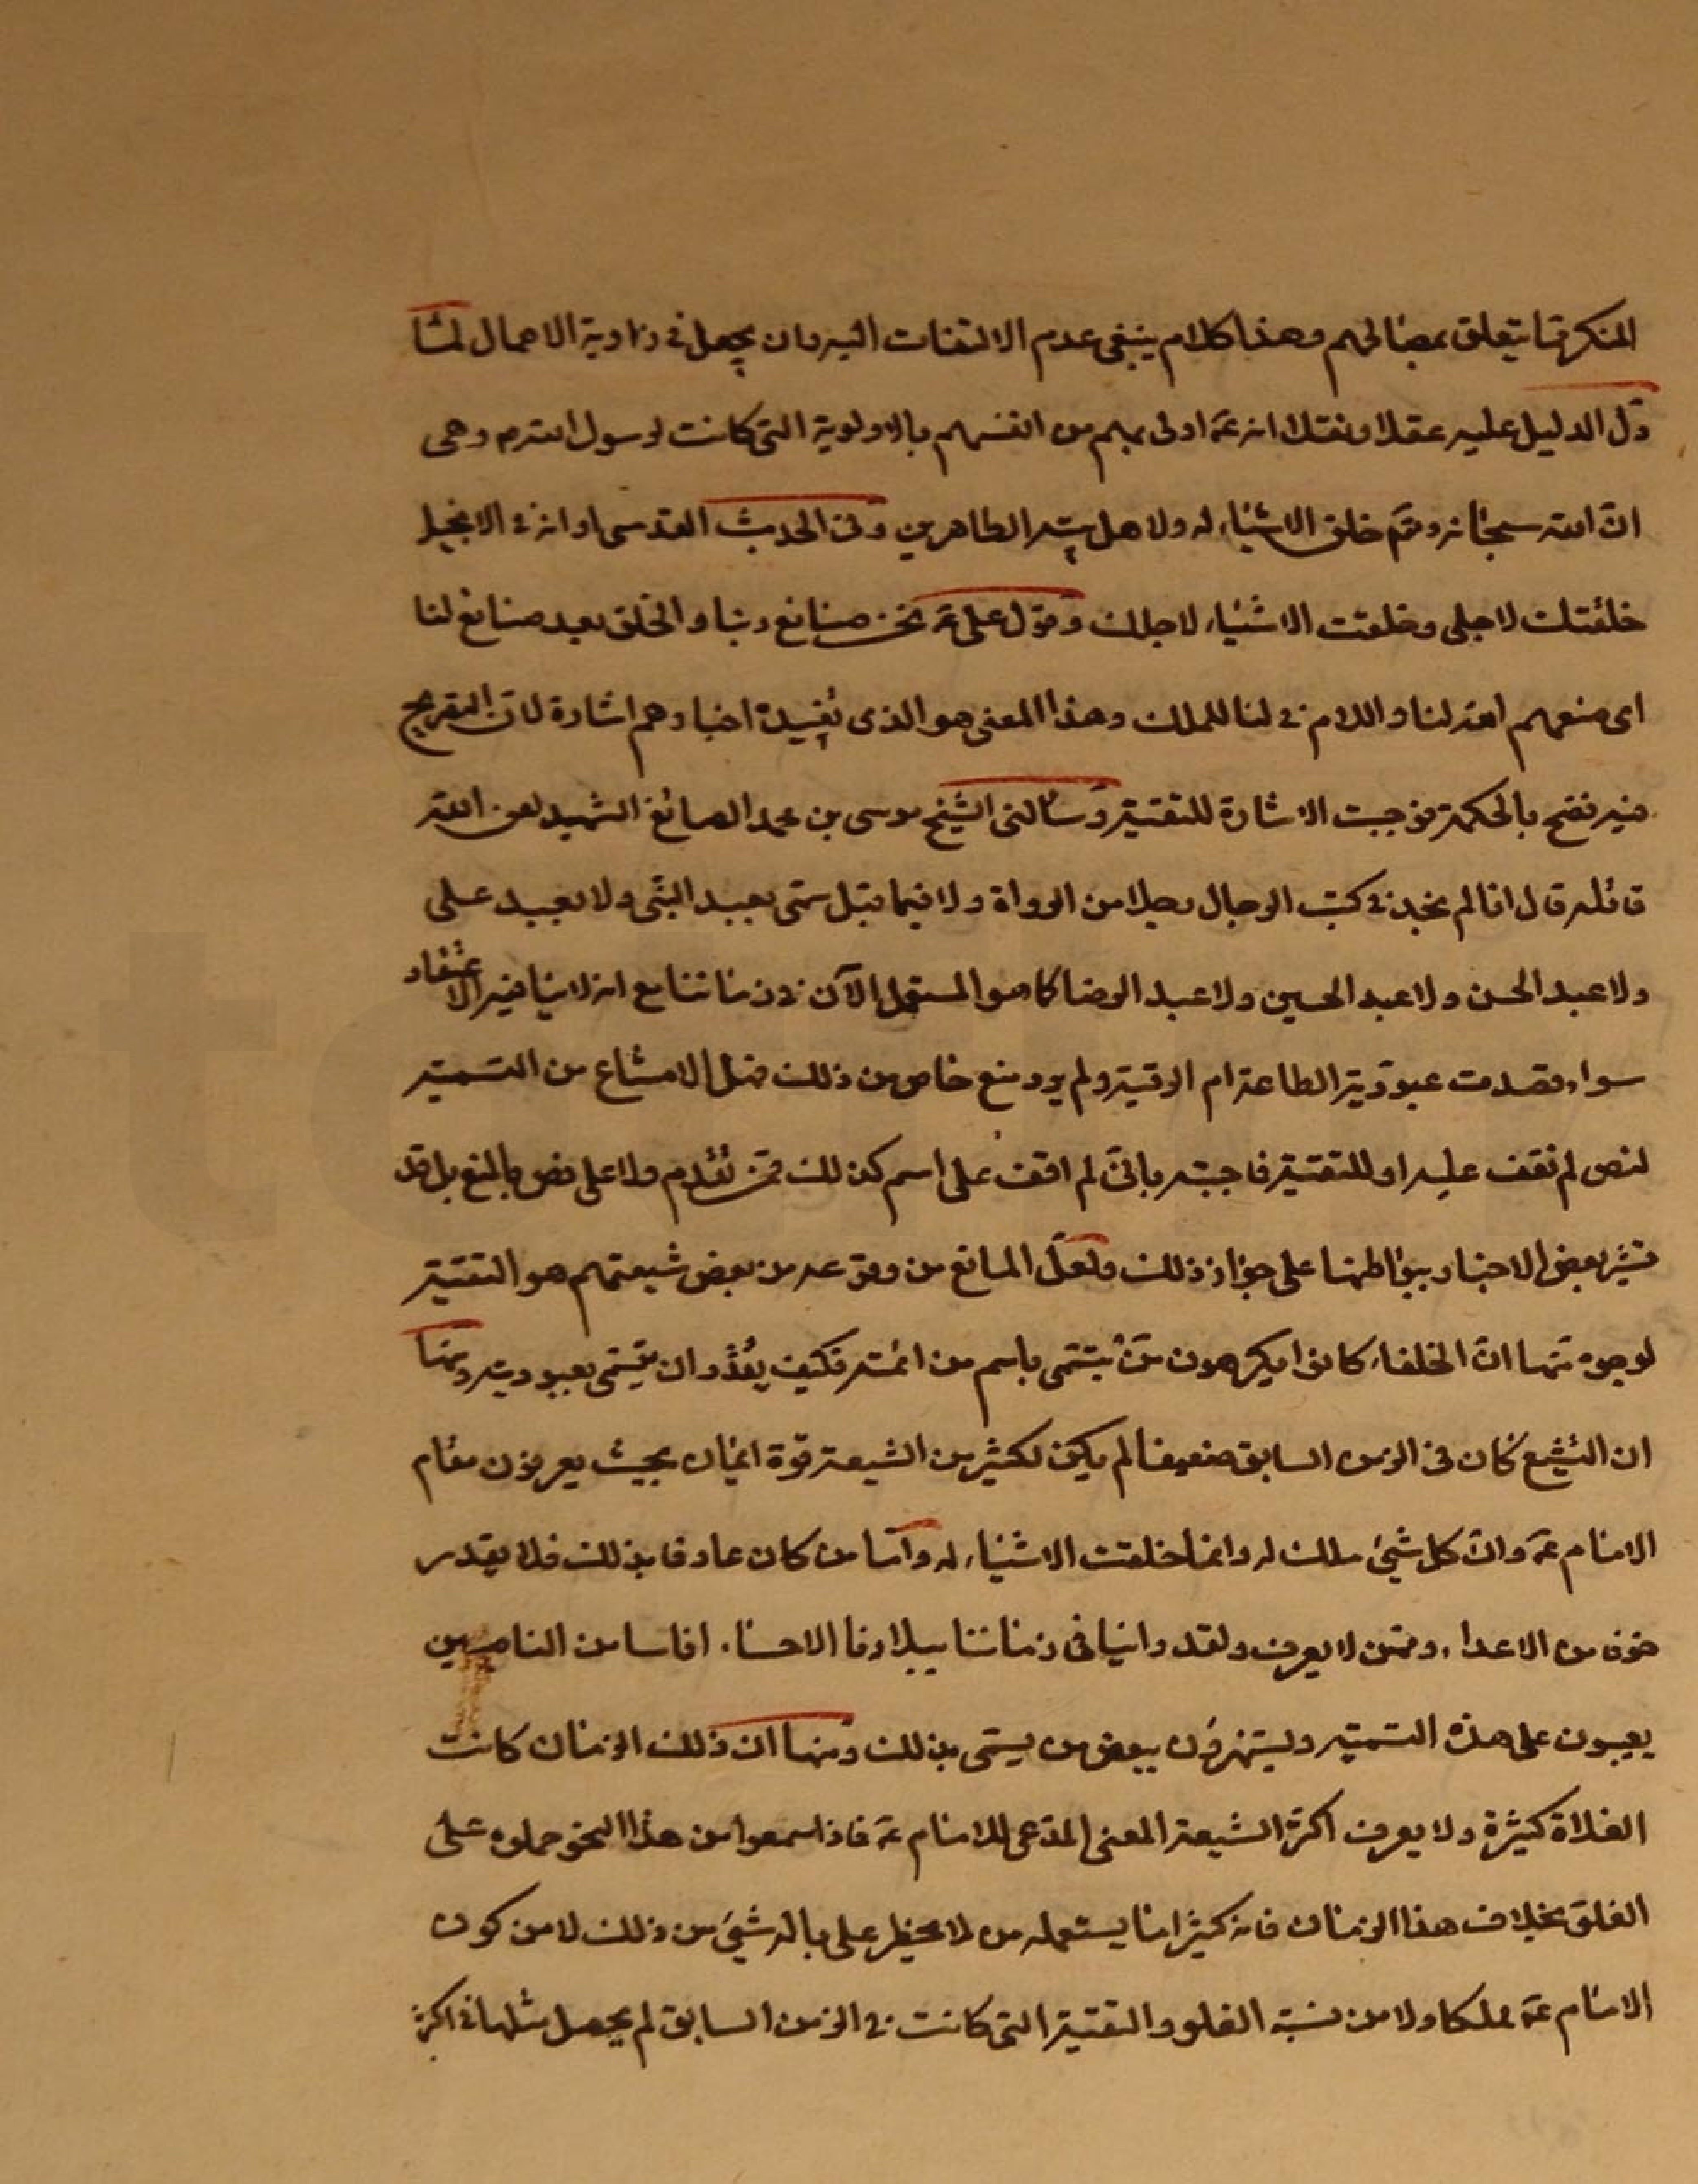 المنكر مما يتعلق بمصالحهم وهذا كلام ينبغي عدم الالتفات اليه وان يجعل في زاوية الاهمال لما
دل الدليل عليه عقلا ونقلا انه ع اولى بهم من انفسهم بالاولوية التي كانت لرسول الله ص وهي
ان الله سبحانه وتع خلق الاشياء له ولاهل بيته الطاهرين وفي الحديث القدسي او انه في الانجيل
خلقتك لاجلي وخلقت الاشياء لاجلك وقول علي ع نحن صنائع ربنا والخلق بعد صنائع لنا
اى صنعهم الله لنا واللام في لنا للملك وهذا المعنى هو الذى تفيده اخبارهم اشارة لان التصريح
فيه نقح بالحكمة فوجبت الاشارة للتقية وسألني الشيخ موسى بن محمد الصائغ الشهيد لعن الله
قاتله قال انا لم نجد في كتب الرجال رجلا من الرواة ولا فيما قبل سمى بعبد النبي ولا بعبد علي
ولا عبد الحسن ولا عبد الحسين ولا عبد الرضا كما هو المستعمل الآن في زماننا مع انه لا ينافيه الاعتقاد
سواء قصدت عبودية الطاعة ام الرقية ولم يرد منع خاص من ذلك فهل الامتناع من التسمية
لنص لم نقف عليه او للتقية فاجبته بانى لم اقف على اسم كذلك ممن تقدم ولا على نص بالمنع بل قد
تشير بعض الاخبار ببواطنها على جواز ذلك ولعل المانع من وقوعه من بعض شيعتهم هو التقية
لوجوه منها ان الخلفاء كانوا يكرهون من يتسمى باسم من ائمته فكيف يقدر ان يتسمى بعبوديته ومنها
ان التشيع كان في الزمن السابق ضعيفا لم يكن لكثير من الشيعة قوة ايمان بحيث يعرفون مقام
الامام ع وان كل شيئ ملك له وانما خلقت الاشياء له واما من كان عارفا بذلك فلا يقدر
خوف من الاعداء وممن لا يعرف ولقد راينا في زماننا ببلادنا الاحساء اناسا من الناصبين
يعيبون على هذه التسمية ويستهزؤن ببعض من يسمى بذلك ومنها ان ذلك الزمان كانت
الغلاة كثيرة ولا يعرف اكثر الشيعة المعنى المدعى للامام ع فاذا سمعوا من هذا النحو حملوه على
الغلو بخلاف هذا الزمان فانه كثيرا ما يستعمله من لا يخطر على باله شيئ من ذلك لا من كون
الامام ع ملكا ولا من نسبة الغلو والتقية التي كانت في الزمن السابق لم يحصل مثلها في اكثر